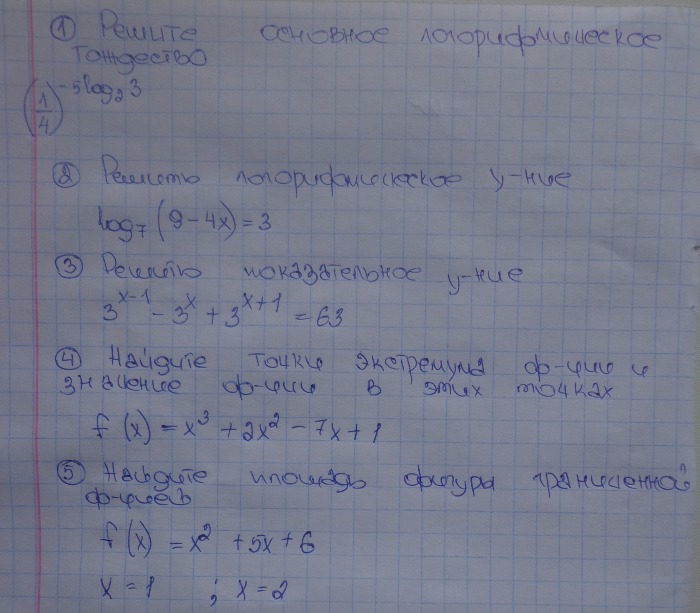 ① Решите основное логорифмическое
тождество
(1/4)^(-5log₂3)
② Решить логорифмическое у-ние
log₇(9-4x)=3
③ Решить показательное у-ние
3^(x-1) - 3^x + 3^(x+1) = 63
④ Найдите точки экстремума ф-ции и
значение ф-ции в этих точках
f(x) = x³ + 2x² - 7x + 1
⑤ Найдите площадь фигура граниченной
ф-цией
f(x) = x² + 5x + 6
x = 1 ; x = 2